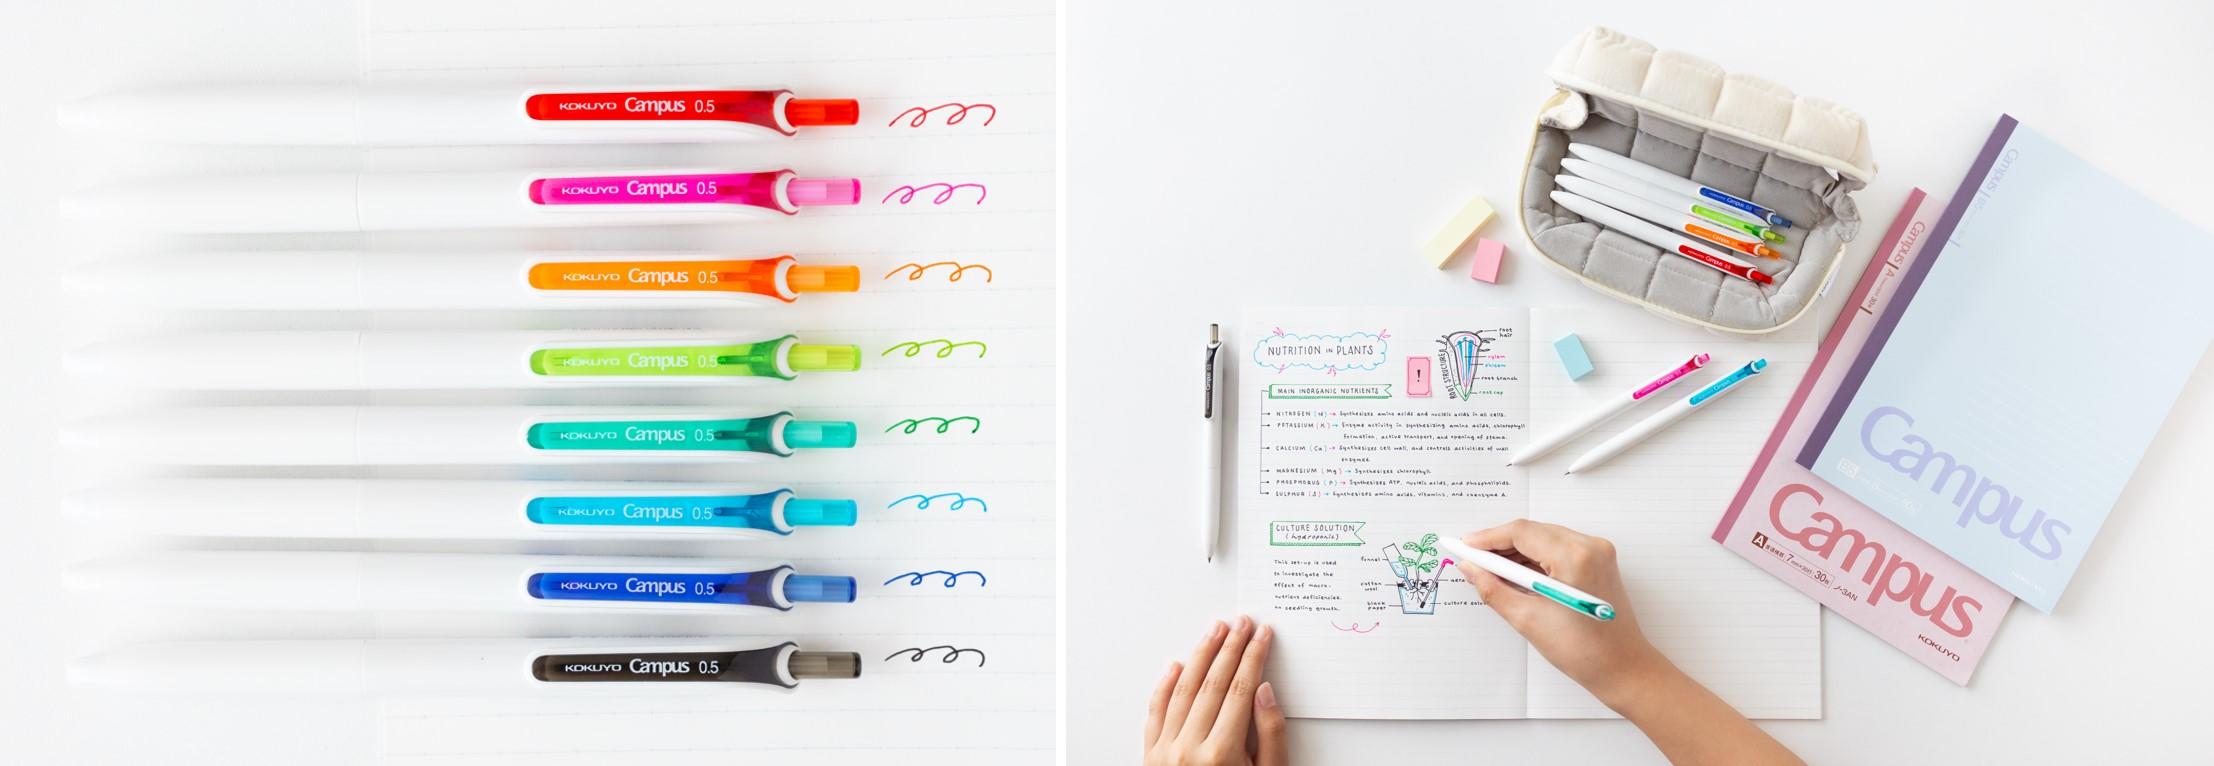 KOKUYO Campus 0.5
KOKUYO Campus 0.5
KOKUYO Campus 0.5
KOKUYO Campus 0.5
KOKUYO Campus 0.5
KOKUYO Campus 0.5
KOKUYO Campus 0.5
KOKUYO Campus 0.5
NUTRITION IN PLANTS
MAIN INORGANIC NUTRIENTS
NITROGEN (N) → Synthesizes amino acids and nucleic acids in all cells.
POTASSIUM (K) → Enzyme activity in synthesizing amino acids, chlorophyll
formation, active transport, and opening of stoma.
CALCIUM (Ca) → Synthesizes cell wall, and controls activities of wall
enzymes.
MAGNESIUM (Mg) → Synthesizes chlorophyll.
PHOSPHORUS (P) → Synthesizes ATP, nucleic acids, and phospholipids.
SULPHUR (S) → Synthesizes amino acids, vitamins, and coenzyme A.
!
ROOT STRUCTURE
root
hair
xylem
phloem
root branch
root cap
CULTURE SOLUTION
(hydroponic)
This set-up is used
to investigate the
effect of macro-
nutrient deficiencies
on seedling growth.
funnel
cotton
wool
black
paper
culture
Campus
Campus
Campus
B5
Campus
A 7mm 30
KOKUYO